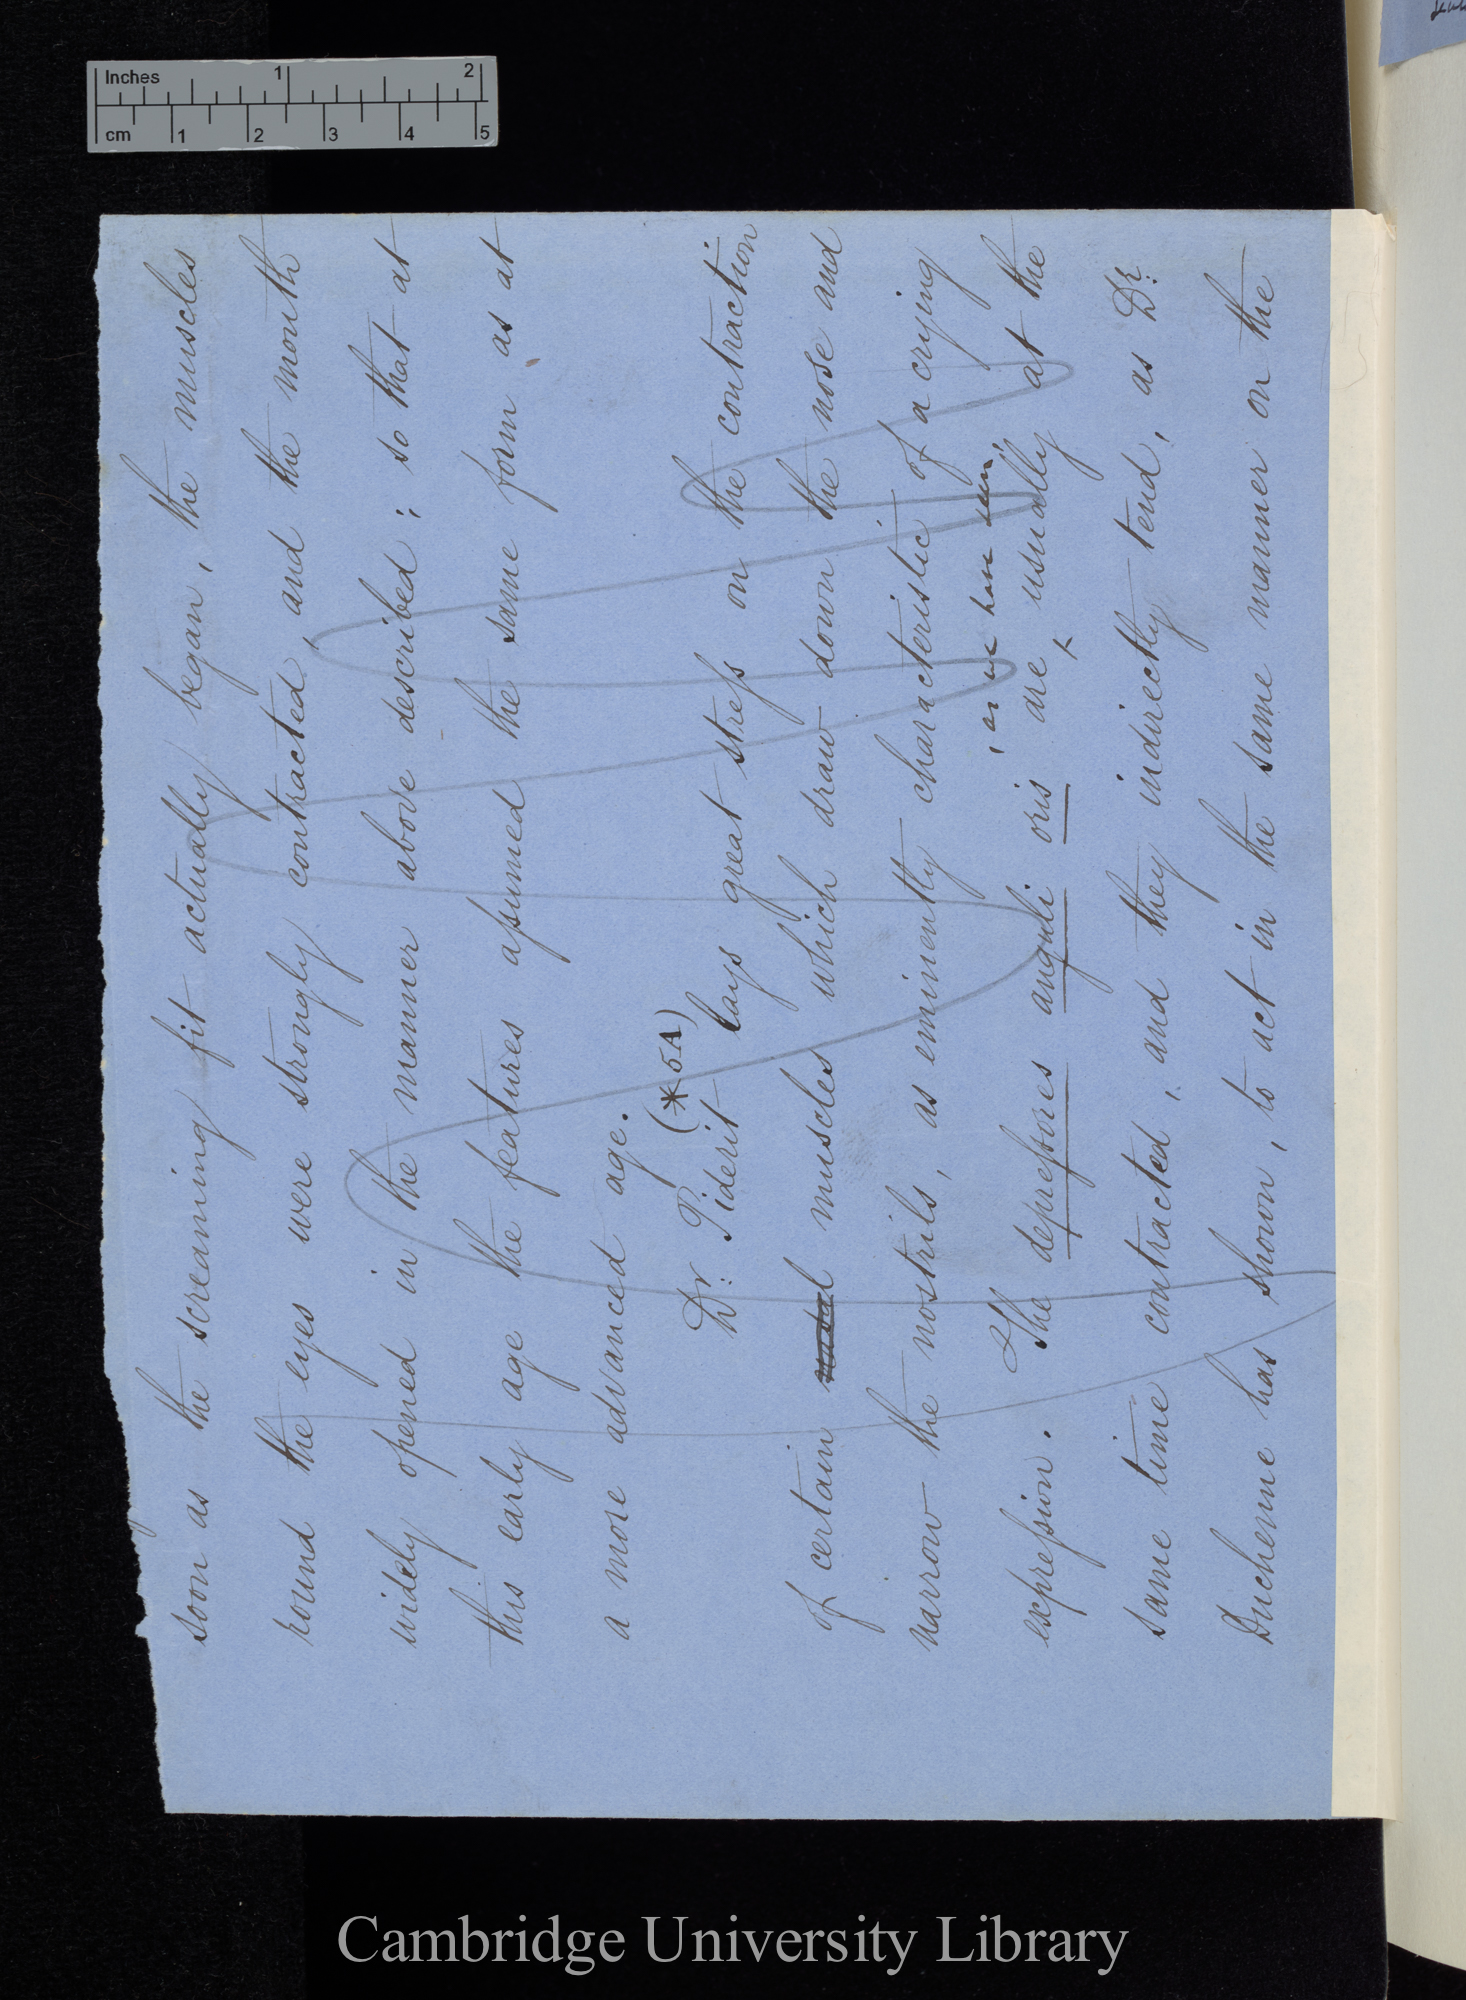 Inches 1 2
cm 1 2 3 4 5
soon as the screaming fit actually began, the muscles
round the eyes were strongly contracted, and the mouth
widely opened in the manner above described; so that at
this early age the features assumed the same form as at
a more advanced age.
(*5A)
Dr. Piderit lays great stress on the contraction
of certain muscles which draw down the nose and
narrow the nostrils, as eminently characteristic of a crying
, as we have seen,
expression. The depressores anguli oris are ^ usually at the
same time contracted, and they indirectly tend, as Dr.
Duchenne has shown, to act in the same manner on the
Cambridge University Library